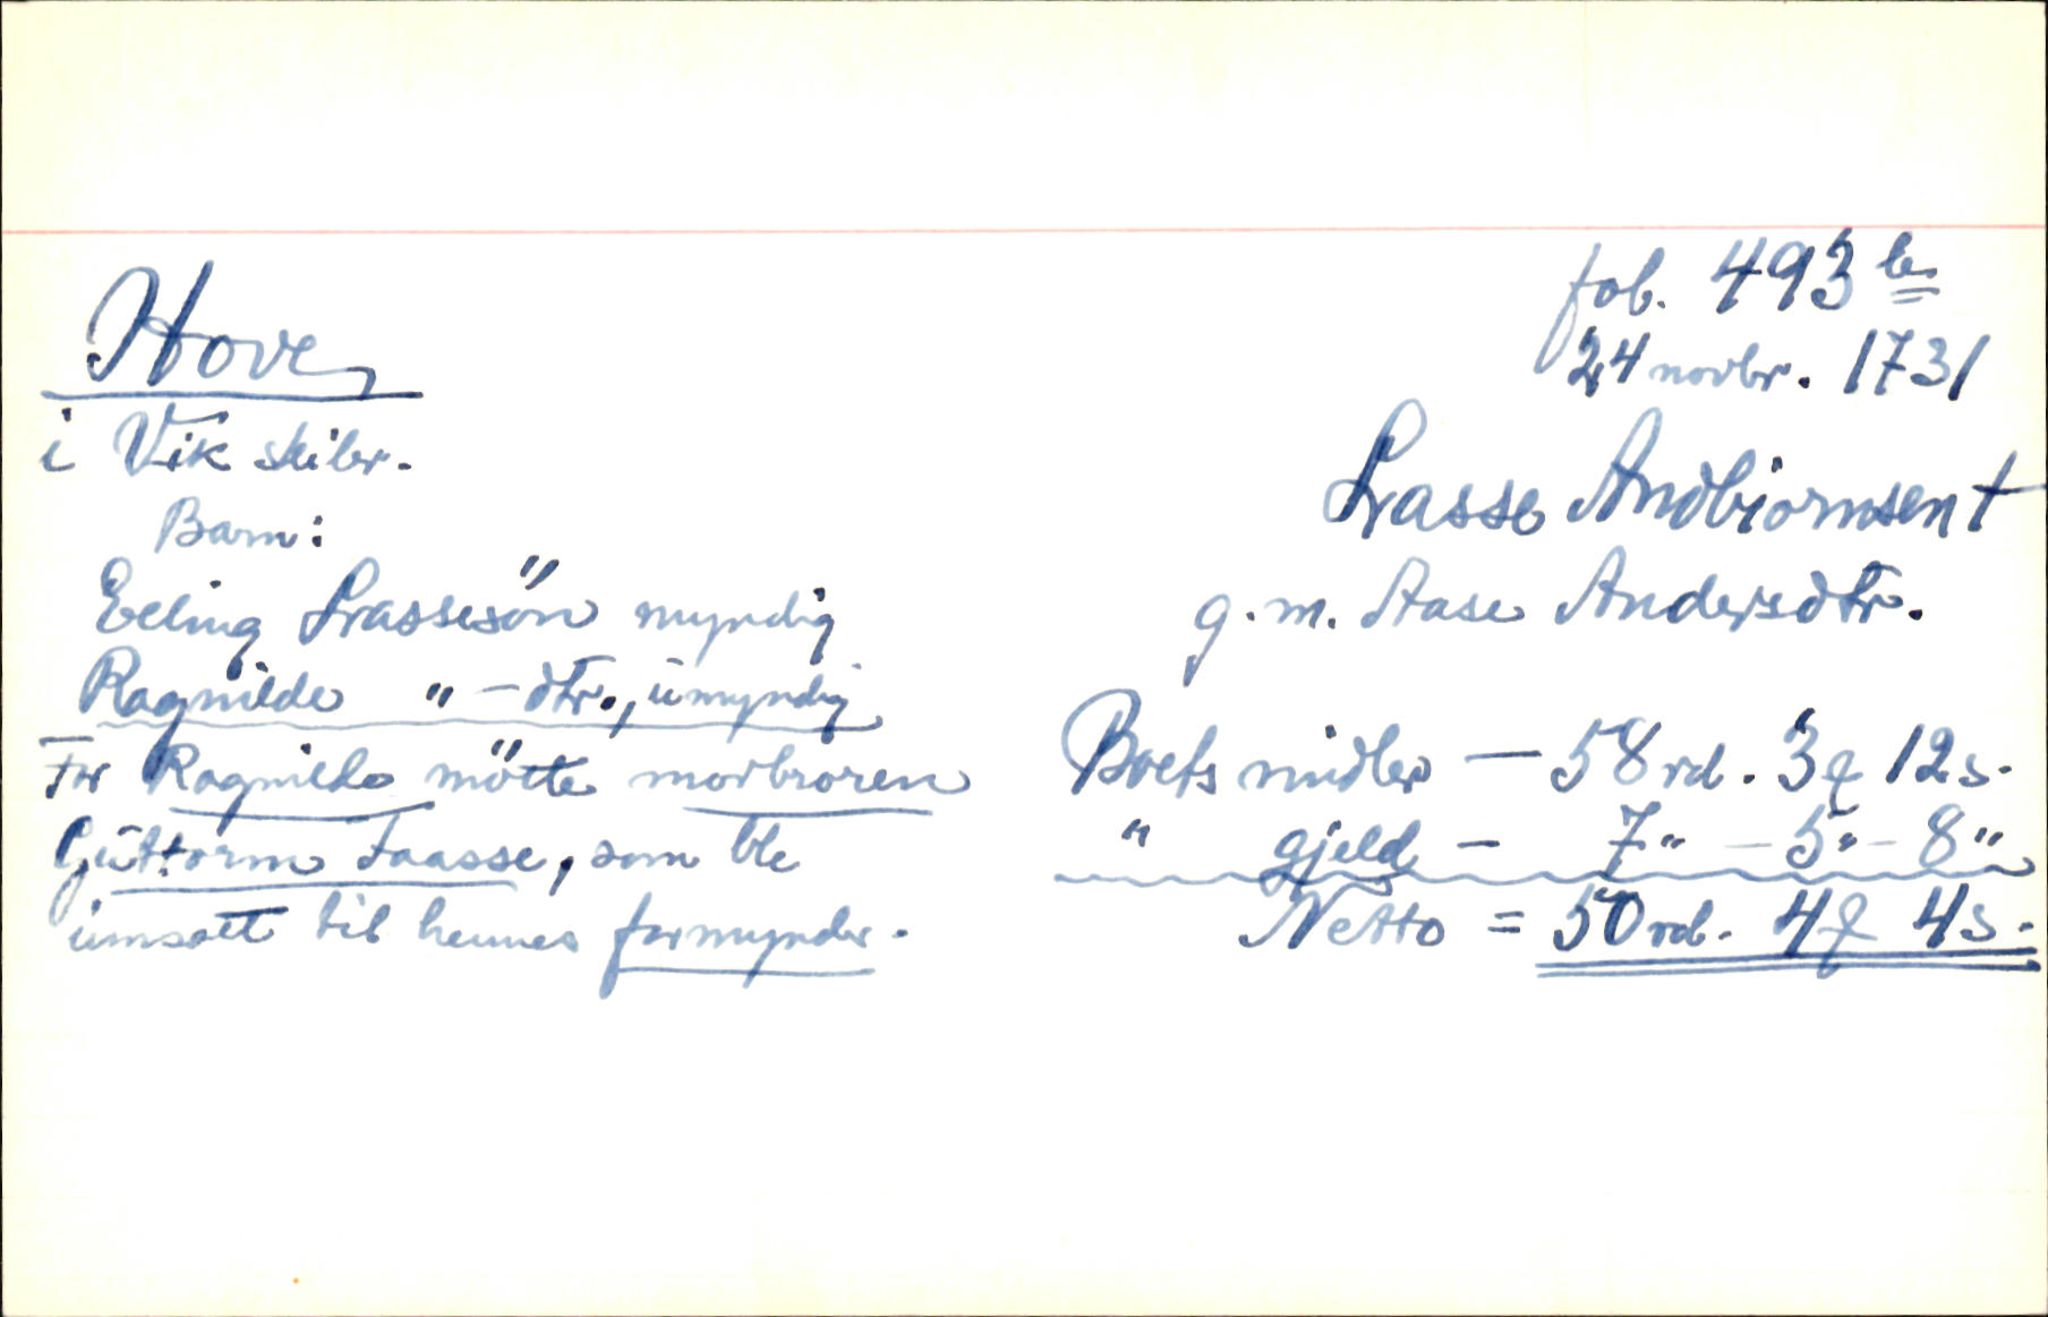 Hove
i Vik skibr.
Barn:
Erling Lrassesön myndig
Ragnilde " - dtr., umyndig
For Ragnilde mötte morbroren
Guttorm Faasse, som ble
innsatt til hennes formynder.
fol. 493 b.
24 novbr. 1731
Lrasse Andbiornsen †
g. m. Aase Andersdtr.
Boets midler — 58 rd. 3 q 12 s.
" gjeld - 7 " - 5 " - 8 "
Netto = 50 rd. 4 q 4 s.